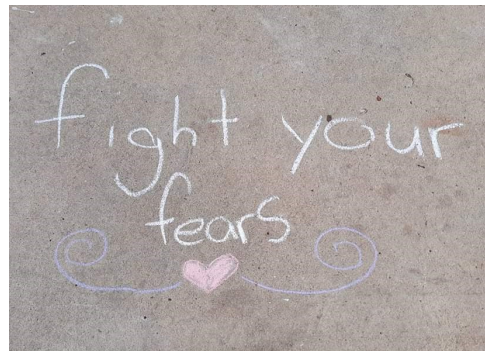 fight your
fears